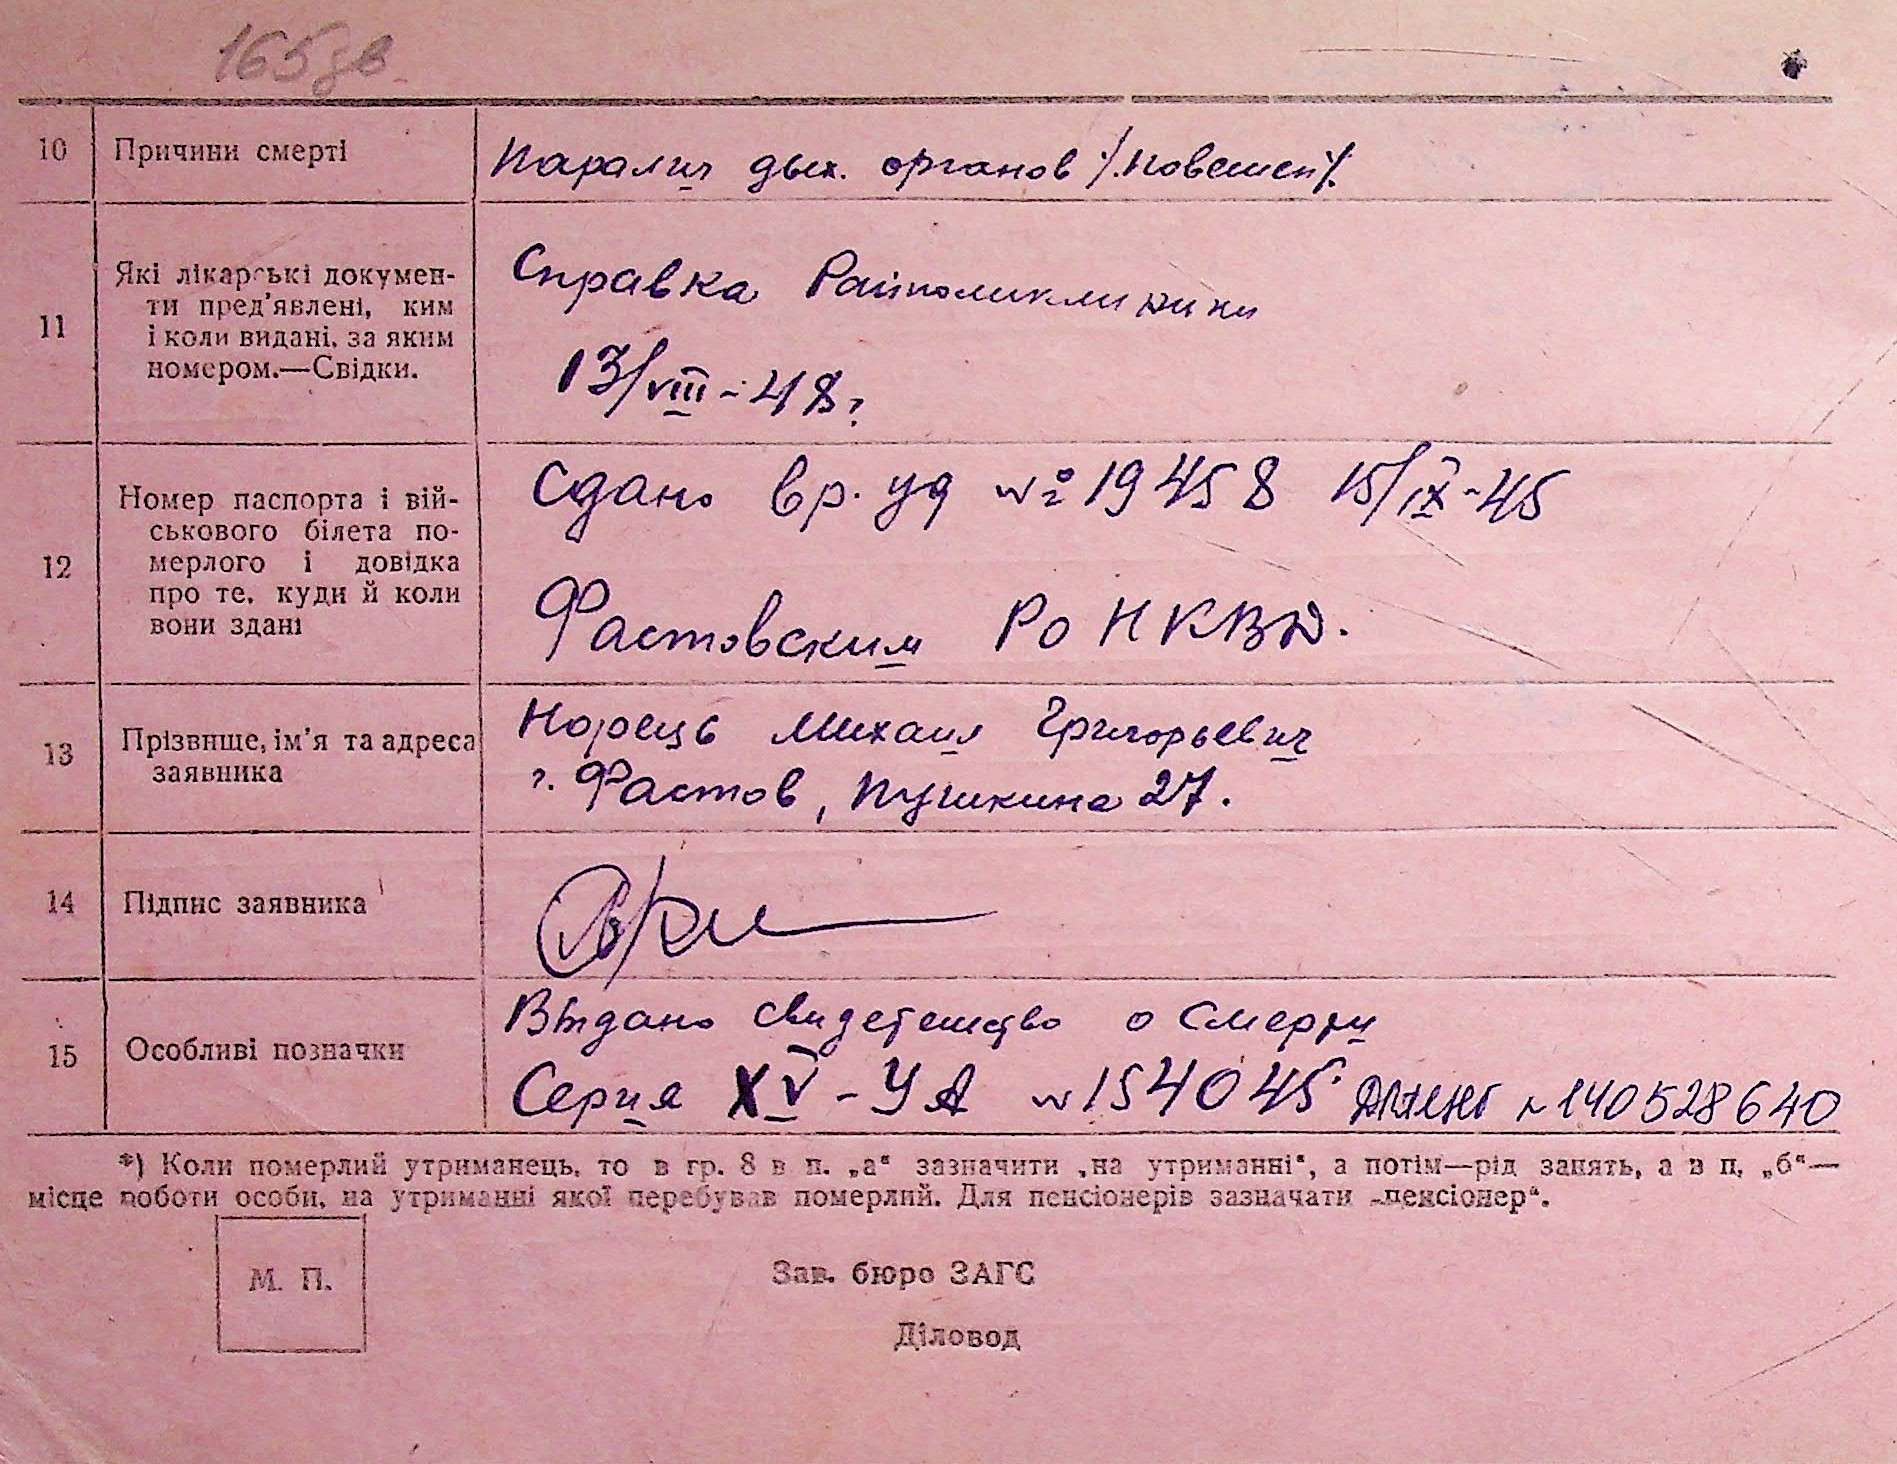 165 зв
10 Причини смерті Паралич дых. органов /. повешен/.
11 Які лікарські докумен-
ти пред'явлені, ким
і коли видані, за яким
номером.—Свідки.
Справка Райполиклиники
13/VIII-48г
12 Номер паспорта і вій-
ськового білета по-
мерлого і довідка
про те, куди й коли
вони здані
Сдано вр. уд № 19458 15/IX-45
Фастовским РО НКВД.
13 Прізвище, ім'я та адреса
заявника
Норець Михаил Григорьевич
г. Фастов, Пушкина 27.
14 Підпис заявника
15 Особливі позначки
Выдано свидетельство о Смерти
Серия XV-УА № 154045 №140528640
*) Коли померлий утриманець, то в гр. 8 в п. „а“ зазначити „на утриманні“, а потім—рід занять, а в п. „б“—
місце роботи особи, на утриманні якої перебував померлий. Для пенсіонерів зазначати „пенсіонер“.
М. П.
Зав. бюро ЗАГС
Діловод